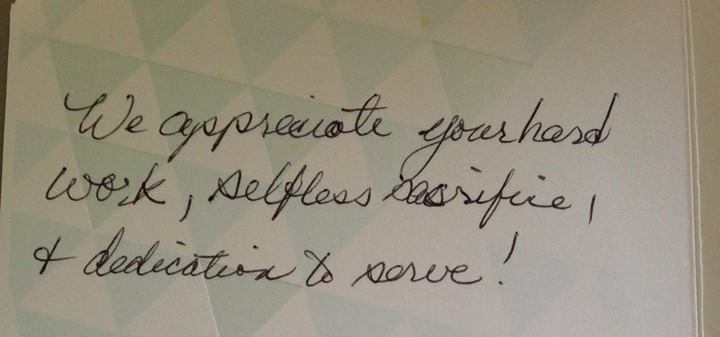 We appreciate your hard
work, selfless sacrifice,
& dedication to serve!